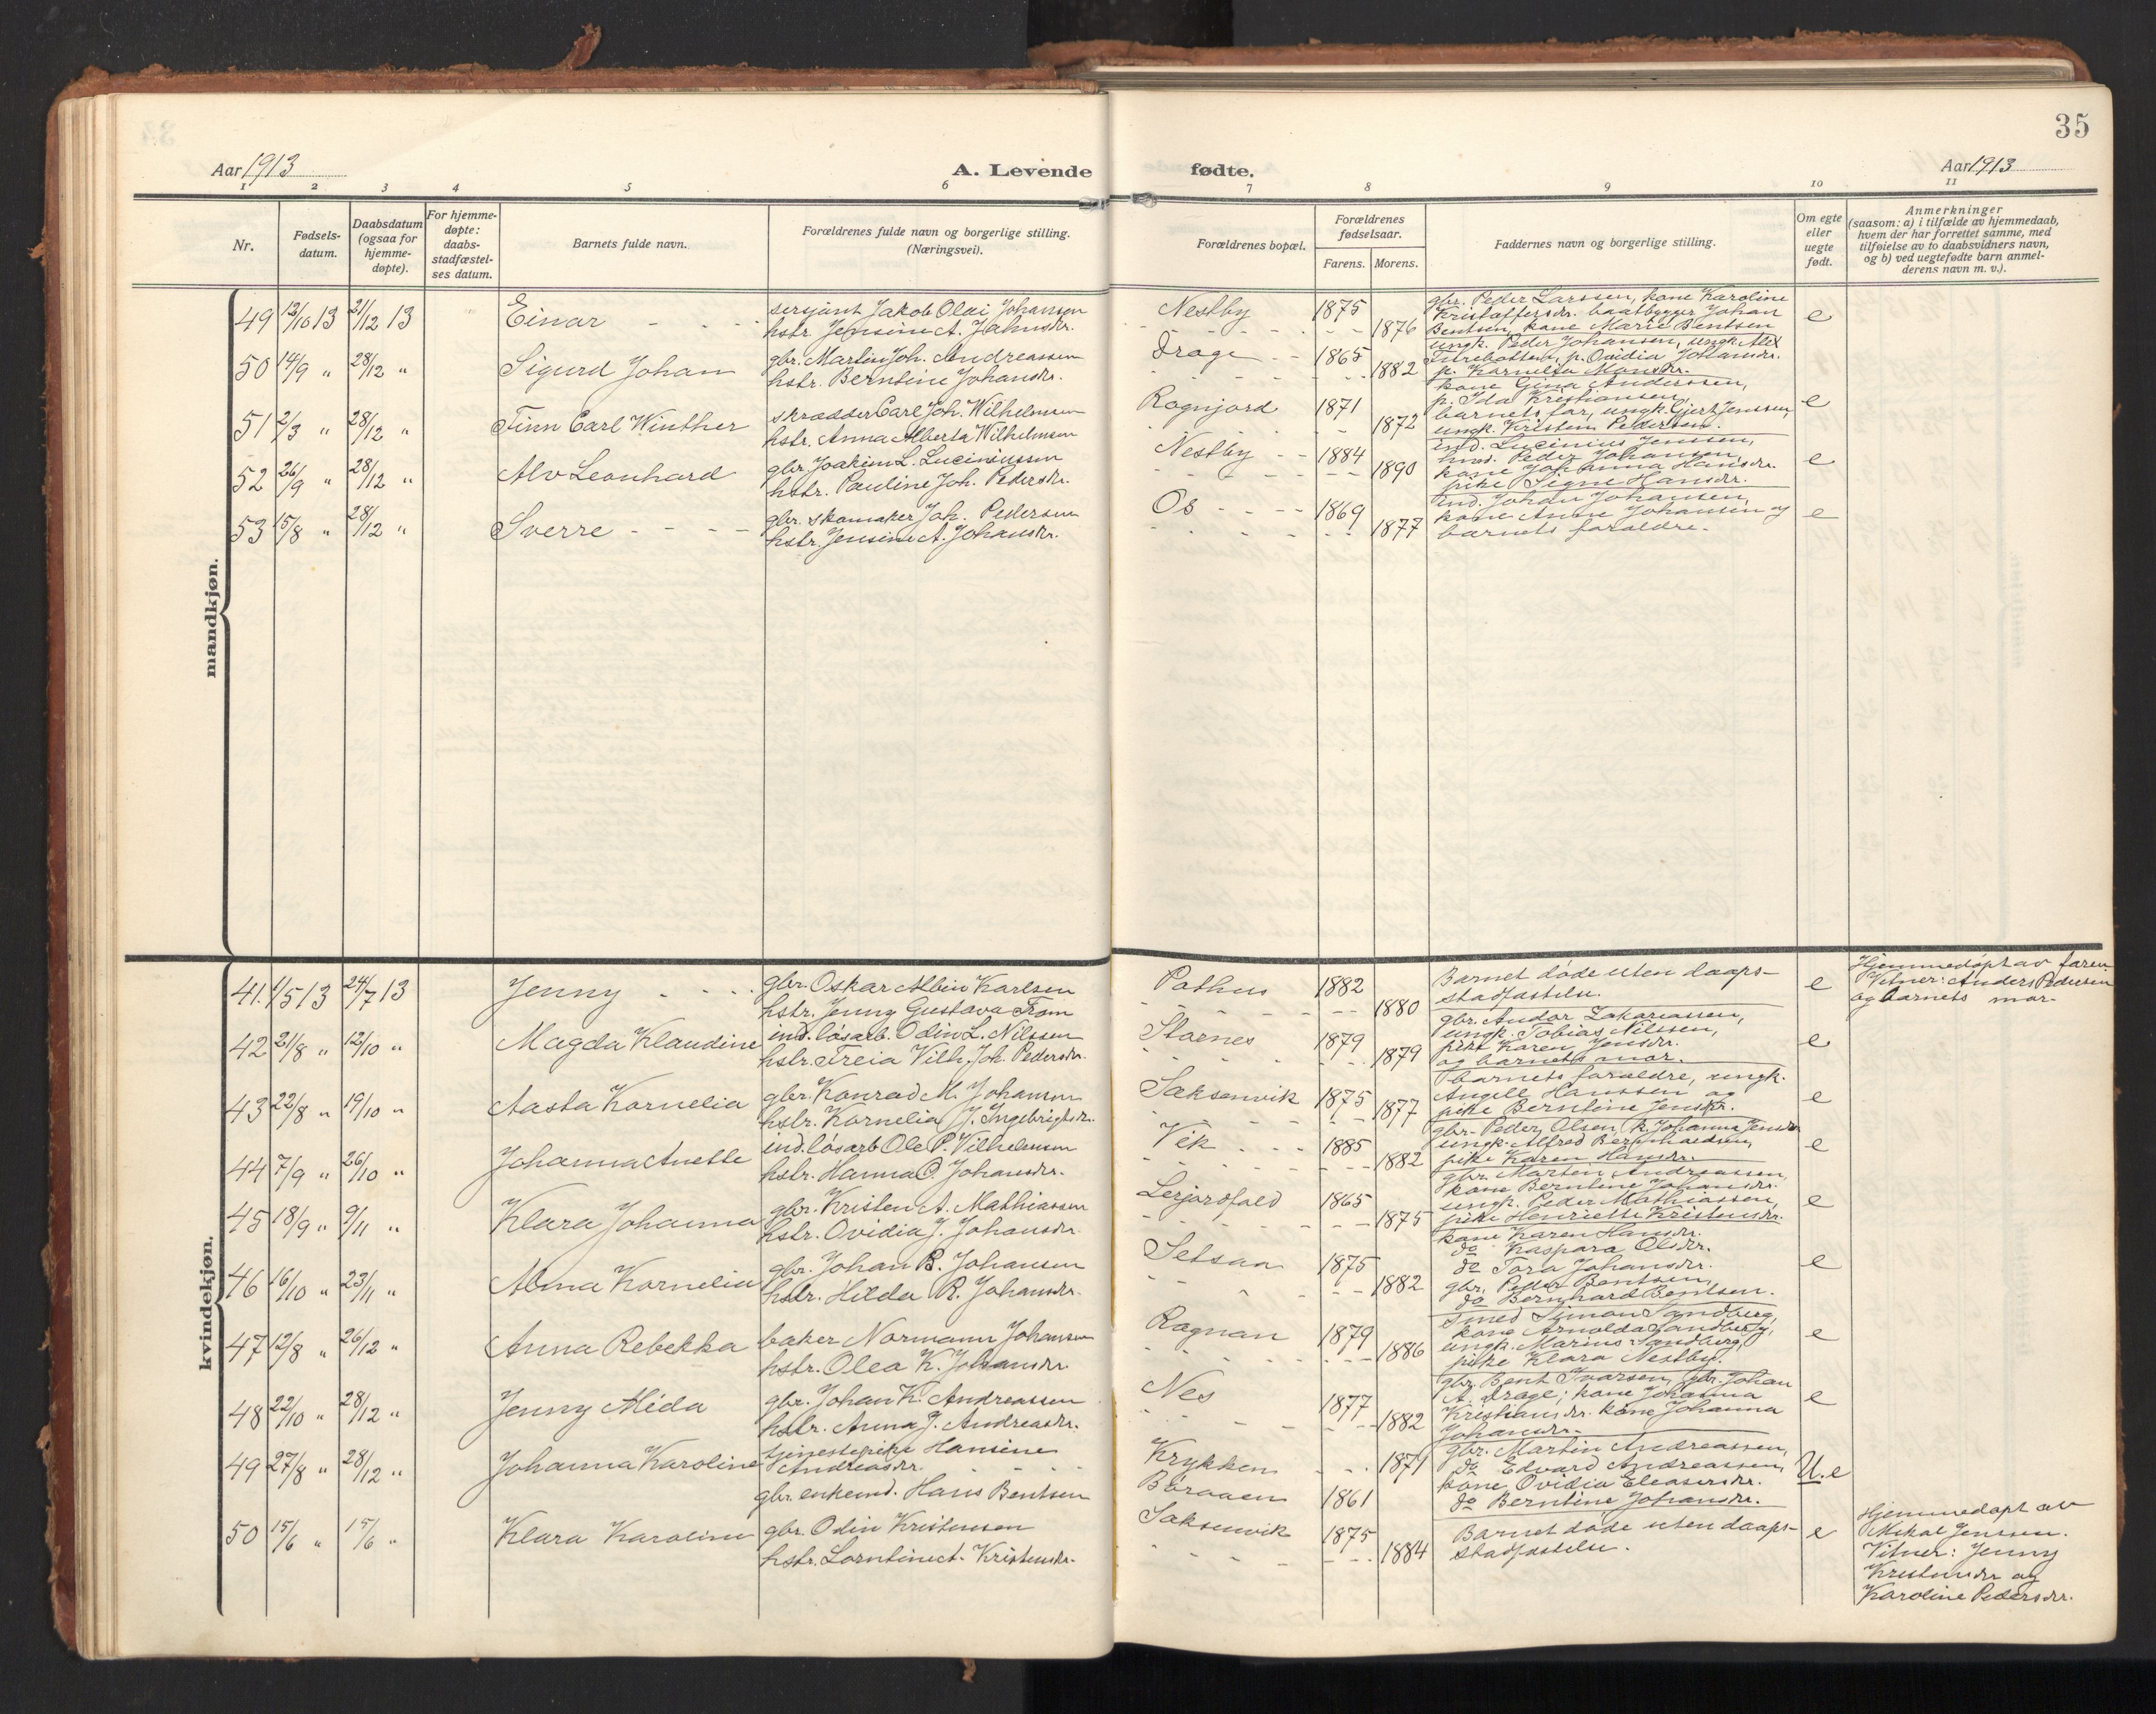 35
Aar 1913
A. Levende fødte.
Aar 1913
1 2 3 4 5 6 7 8 9 10 11
Nr.
Fødsels-
datum.
Daabsdatum
(ogsaa for
hjemme-
døpte).
For hjemme-
døpte:
daabs-
stadfæstel-
ses datum.
Barnets fulde navn.
Forældrenes fulde navn og borgerlige stilling.
(Næringsvei).
Forældrenes bopæl.
Forældrenes
fødselsaar.
Farens. Morens.
Faddernes navn og borgerlige stilling.
Om egte
eller
uegte
født.
Anmerkninger
(saasom: a) i tilfælde av hjemmedaab,
hvem der har forrettet samme, med
tilføielse av to daabsvidners navn,
og b) ved uegtefødte barn anmel-
derens navn m. v.).
mandkjøn.
49 12/10 13 21/12 13 Einar
sersjant Jakob Olai Johansen
hstr. Jensine A. Jahnsdr.
Nestby 1875 1876
gbr. Peder Larssen, kone Karoline
Kristoffersdr. baatbygger Johan
Bentsen, kone Marie Bentsen
e
50 14/9 " 28/12 " Sigurd Johan
gbr. Martin Joh. Andreassen
hstr. Berntine Johansdr.
Drage 1865 1882
ungk. Peder Johansen, ungk. Alex
p. Ovidia Johansdr.
p. Kornelia Monsdr.
51 2/3 " 28/12 " Finn Carl Winther
skrædder Carl Joh. Wilhelmsen
hstr. Anna Alberta Wilhelmsen
Rognjord 1871 1872
kone Gina Anderssen,
p. Ida Kristiansen,
barnets far, ungk. Gjert Jenssen,
ungk. Kristen Pedersen.
e
52 26/9 " 28/12 " Alv Leonhard
gbr. Joakim L. Luciniussen
hstr. Pauline Joh. Pedersdr.
Nestby 1884 1890
ind. Lucinius Jenssen,
Peder Johansen,
kone Johanna Hansdr.
pike Signe Hansdr.
e
53 15/8 " 28/12 " Sverre
gbr. skomaker Joh. Pedersen
hstr. Jensine A. Johansdr.
Os 1869 1877
ind. Johan Johansen,
kone Anne Johansen og
barnets forældre.
e
kvindekjøn.
41. 1/5 13 24/7 13 Jenny
gbr. Oskar Albin Karlsen
hstr. Jenny Gustava From
Pothus 1882 1880
Barnet døde uten daaps-
stadfæstelse.
e
Hjemmedøpt av faren.
Vitner: Anders Pedersen
og barnets mor.
42 21/8 " 12/10 " Magda Klaudine
ind. løsarb. Odin L. Nilssen
hstr. Freia Vilh. Joh. Pedersdr.
Stornes 1879 1879
gbr. Andor Zakariassen,
ungk. Tobias Nilssen,
pike Karen Jensdr.
og barnets mor.
e
43 22/8 " 19/10 " Aasta Kornelia
gbr. Konrad M. Johansen
hstr. Kornelia J. Ingebrigtsdr.
Saksenvik 1875 1877
barnets forældre, ungk.
Angell Hanssen og
pike Berntine Jensdr.
e
44 7/9 " 26/10 " Johanna Anette
ind. løsarb Ole P. Vilhelmsen
hstr. Hanna O. Johansdr.
Vik 1885 1882
gbr. Peder Olsen, k. Johanna Jensdr.
ungk. Alfred Bernhardsen,
pike Karen Hansdr.
e
45 18/9 " 9/11 " Klara Johanna
gbr. Kristen A. Mathiassen
hstr. Ovidia J. Johansdr.
Lerjordfald 1865 1875
gbr. Martin Andreassen,
kone Berntine Johansdr.
ungk. Peder Mathiassen,
pike Henriette Kristensdr.
e
46 16/10 " 23/11 " Alma Kornelia
gbr. Johan B. Johansen
hstr. Hilda R. Johansdr.
Setsaa 1875 1882
kone Karen Hansdr.
do Kaspara Olsdr.
do Tora Johansdr.
gbr. Peder Bentsen,
do Bernhard Bentsen.
e
47 12/8 " 26/12 " Anna Rebekka
baker Normann Johansen
hstr. Olea K. Johansdr.
Rognan 1879 1886
Smed Simon Sandberg,
kone Arnolda Sandberg,
ungk. Marius Sandberg,
pike Klara Nestby.
e
48 22/10 " 28/12 " Jenny Alida
gbr. Johan K. Andreassen
hstr. Anna J. Andreasdr.
Nes 1877 1882
gbr. Bent Ivarsen, gbr. Johan
A. Drage; kone Johanna
Kristiansdr. kone Johanna
Johansdr.
e
49 27/8 " 28/12 " Johanna Karoline
tjenestepike Hansine
Andreasdr.
gbr. enkemd. Hans Bentsen
Krykken 1871
Børaaen 1861
gbr. Martin Andreassen,
do Edvard Andreassen,
kone Ovidia Eleasersdr.
do Berntine Johansdr.
U.e
50 15/6 " 15/6 " Klara Karoline
gbr. Odin Kristensen
hstr. Lorntine A. Kristensdr.
Saksenvik 1875 1884
Barnet døde uten daaps-
stadfæstelse.
e
Hjemmedøpt av
Mikal Jenssen.
Vitner: Jenny
Kristensdr og
Karoline Pedersdr.